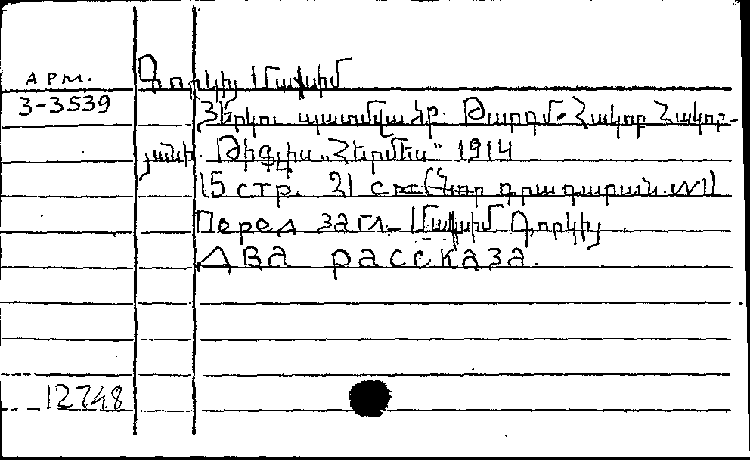 Գորկիյ Մաքսիմ
АРМ.
3-3539
Յերկու պատմվածք. Թարգմ. Հակոբ Հակոբ-
յանի. Թիֆլիս „Հերմես“ 1914
15 стр. 21 см (Նոր գրադարան №1)
Перед загл. Մաքսիմ Գորկիյ
Два рассказа.
12748